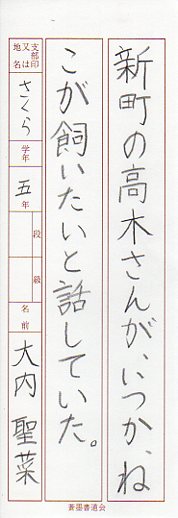 新町の高木さんが、いつか、ね
こが飼いたいと話していた。
支部印又は地名 さくら 学年 五年 段 級 名前 大内聖菜
書墨書道会